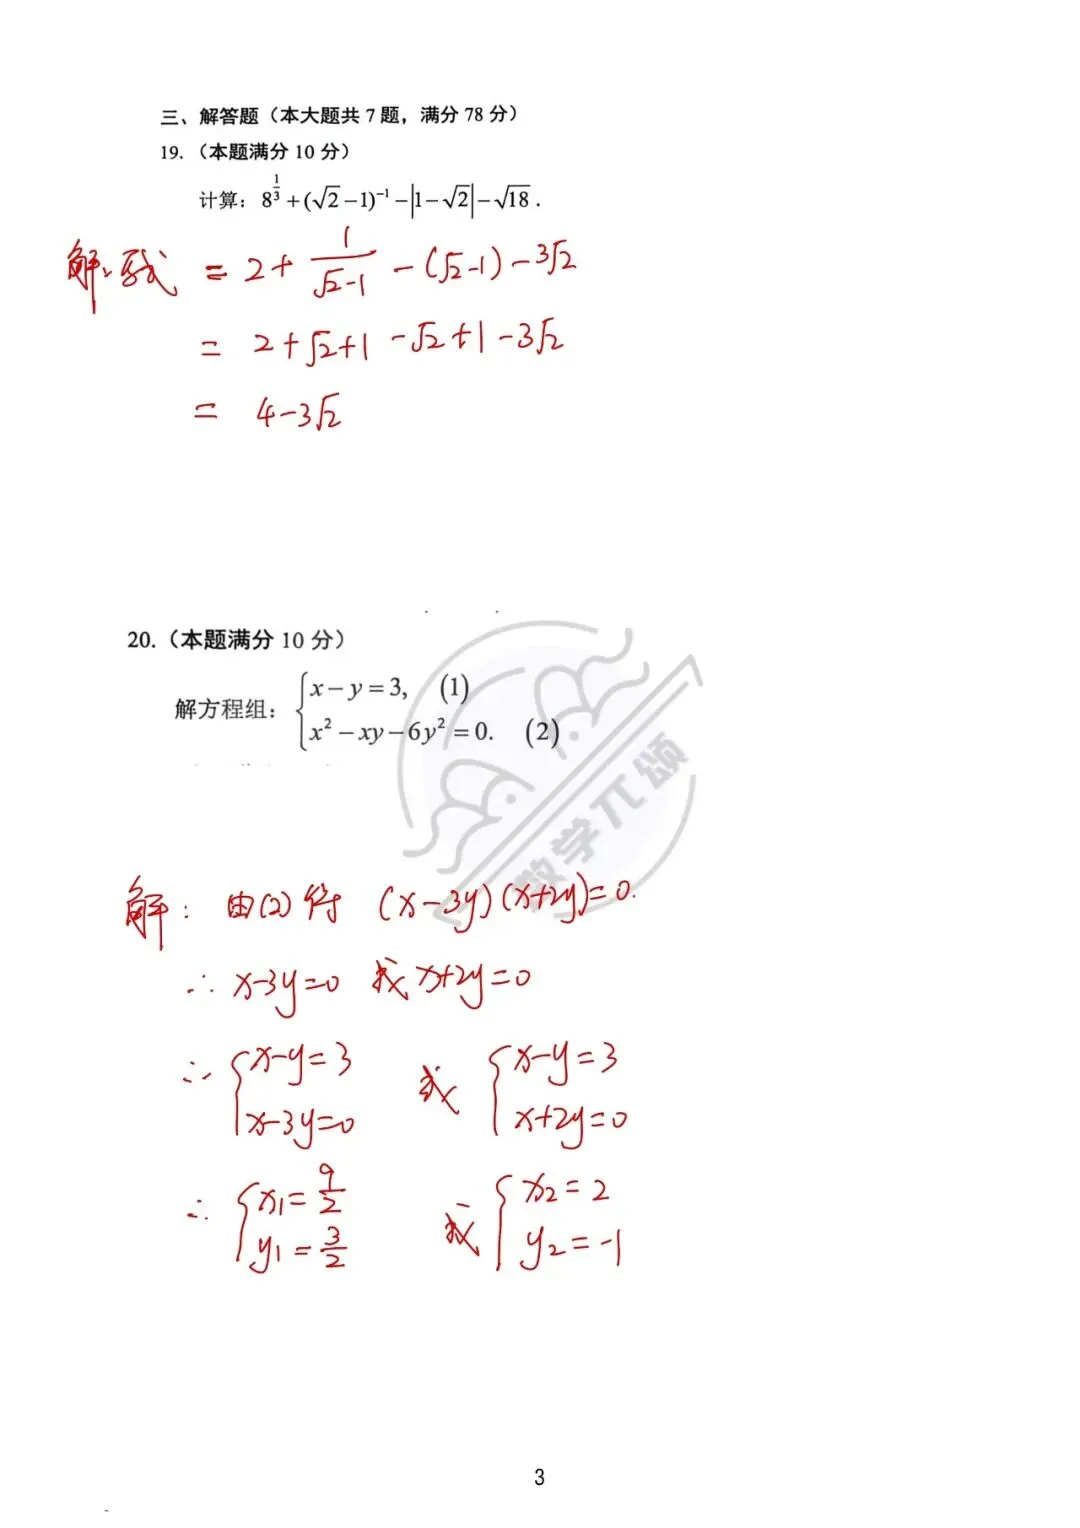 三、解答题（本大题共 7 题，满分 78 分）
19. （本题满分 10 分）
计算：8^{1/3} + (√2 − 1)^{-1} − |1 − √2| − √18 .
解：原式 = 2 + 1/(√2-1) - (√2-1) - 3√2
= 2 + √2 + 1 - √2 + 1 - 3√2
= 4 - 3√2
20.（本题满分 10 分）
解方程组：{ x − y = 3, (1)
x² − xy − 6y² = 0. (2)
数学π颂
解：由(2)得 (x-3y)(x+2y)=0.
∴ x-3y=0 或 x+2y=0
∴ { x-y=3 或 { x-y=3
x-3y=0 x+2y=0
∴ { x₁=9/2 或 { x₂=2
y₁=3/2 y₂=-1
3